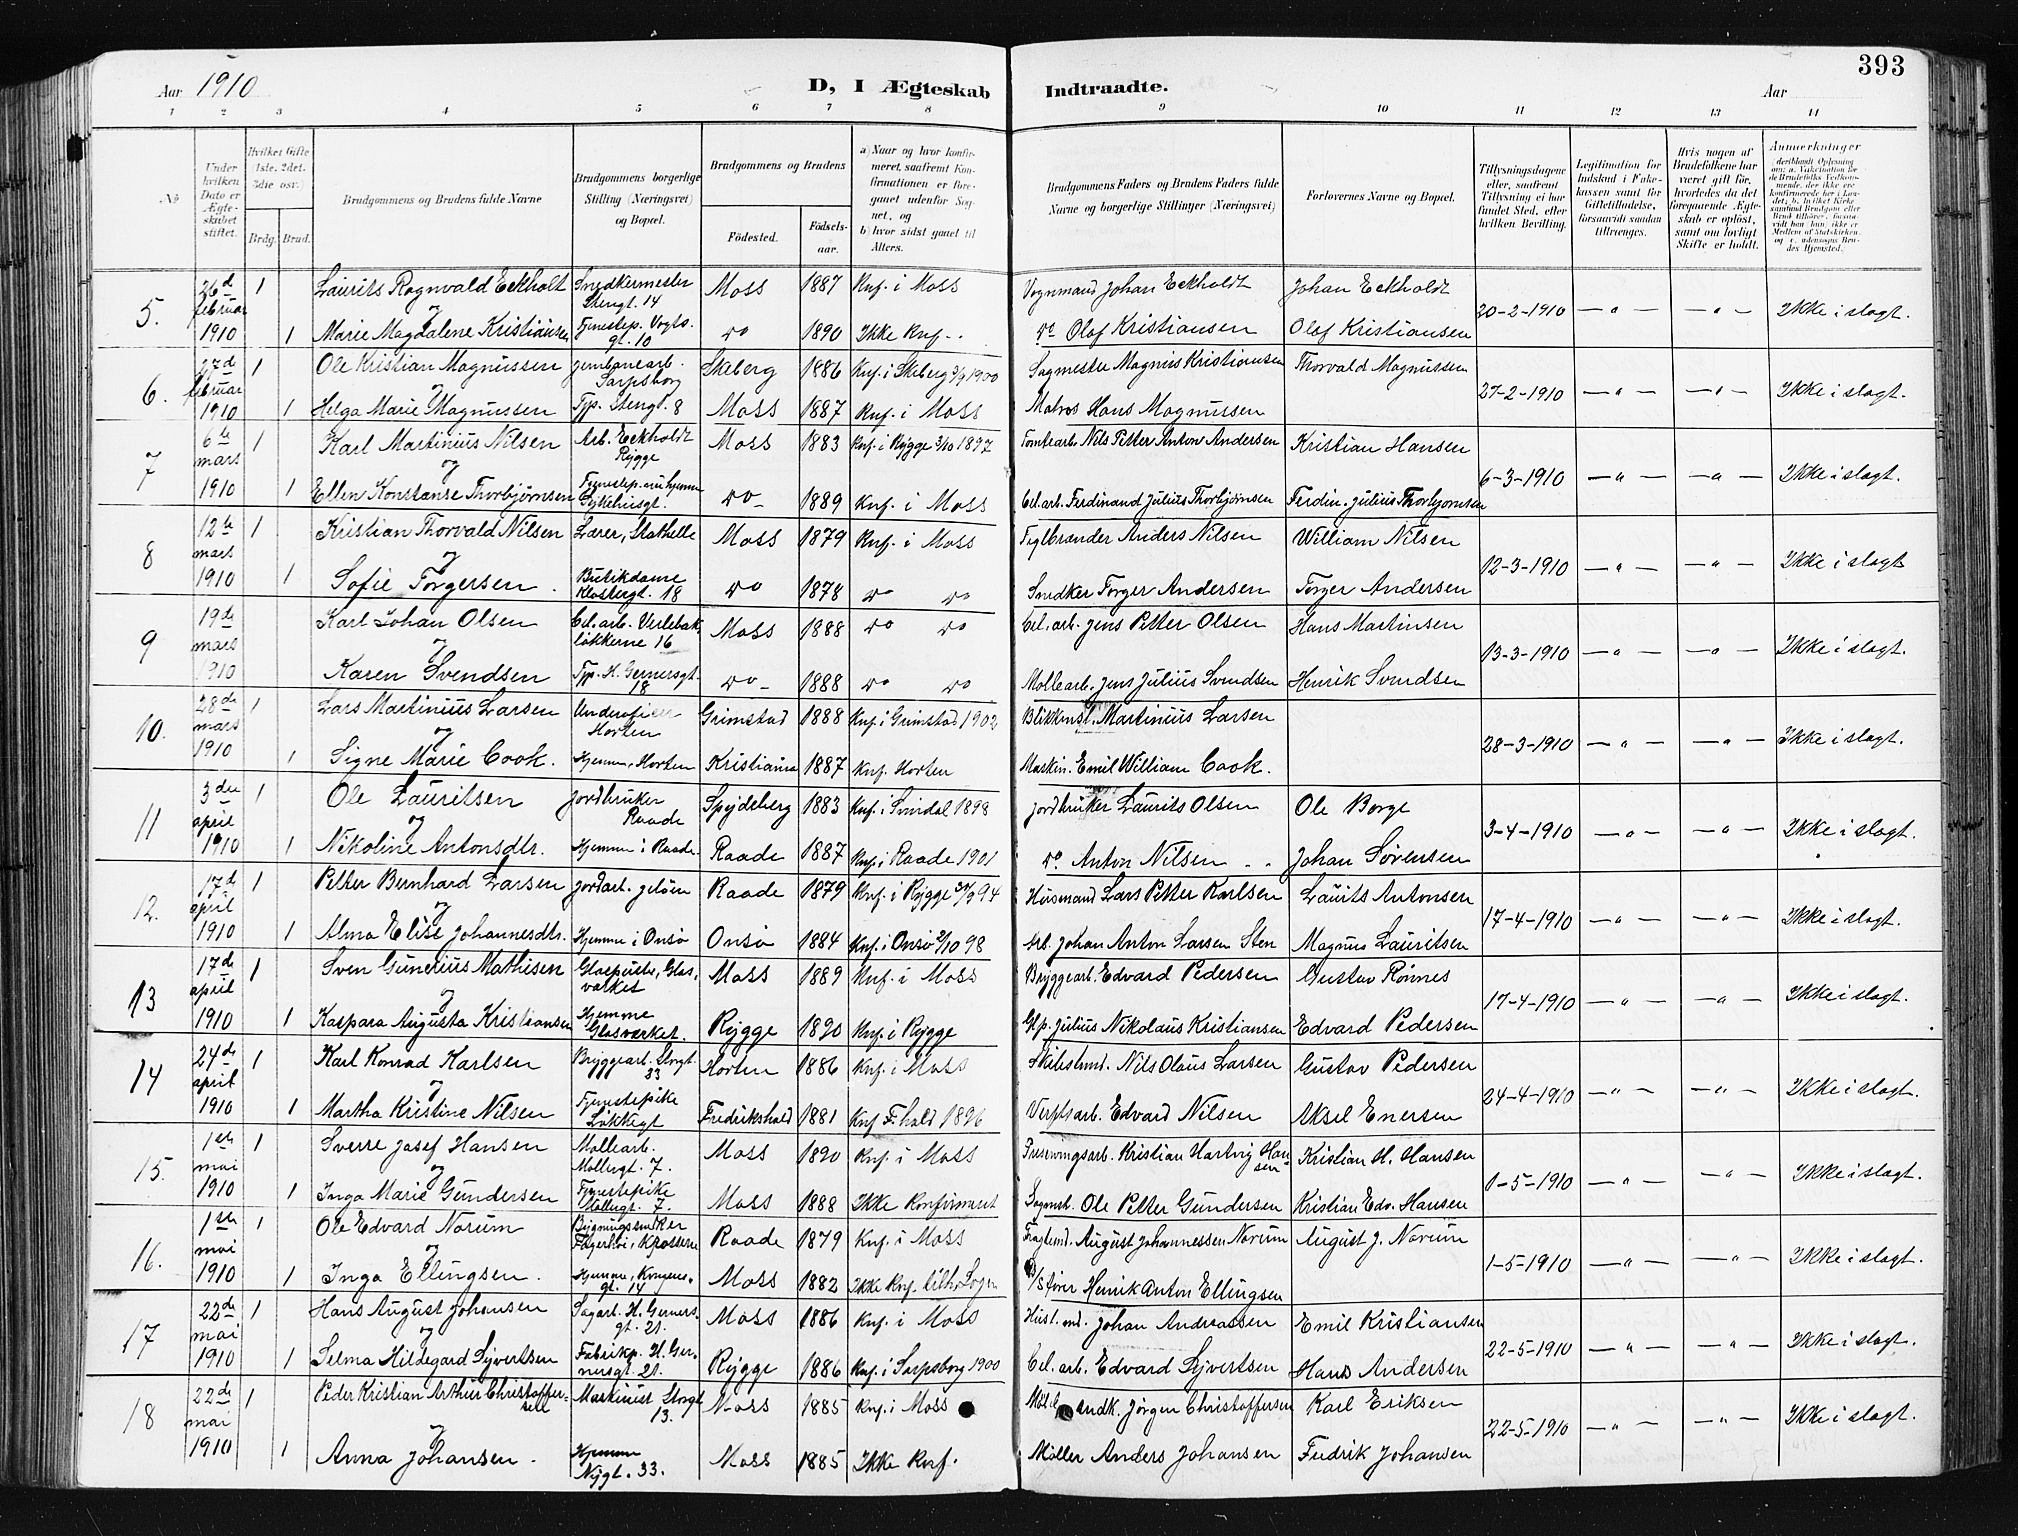 393
Aar 1910
D, I Ægteskab Indtraadte.
Aar
1 2 3 4 5 6 7 8 9 10 11 12 13 14
No
Under hvilken Dato er Ægteskabet stiftet.
Hvilket Gifte 1ste, 2det, 3die osv.)
Brdg. Brud.
Brudgommens og Brudens fulde Navne
Brudgommens borgerlige Stilling (Næringsvei) og Bopæl.
Brudgommens og Brudens
Födested.
Födsels-aar.
a) Naar og hvor konfirmeret, saafremt Konfirmationen er foregaaet udenfor Sognet, og
b) hvor sidst gaaet til Alters.
Brudgommens Faders og Brudens Faders fulde Navne og borgerlige Stillinger (Næringsvei)
Forlovernes Navne og Bopæl.
Tillysningsdagene eller, saafremt Tillysning ei har fundet Sted, efter hvilken Bevilling.
Legitimation for Indskud i Enkekassen samt for Giftetilladelse, forsaavidt saadan tiltrænges.
Hvis nogen af Brudefolkene har været gift för, hvorledes da det foregaaende Ægteskab er oplöst, samt om lovligt Skifte er holdt.
Anmærkninger
5. 26d februar 1910 1 Laurits Ragnvald Eckholt Snedkermester Stengt. 14 Moss 1887 Knf. i Moss Vognmand Johan Eckholdt Johan Eckholdt 20-2-1910 — " — — " — Ikke i slagt.
og
1 Marie Magdalene Kristiansen Tjenstep. Vogts. gt. 10 do 1890 Ikke Knf. do Olaf Kristiansen Olaf Kristiansen
6. 27d februar 1910 1 Ole Kristian Magnussen jernbanearb. Sarpsborg Skeberg 1886 Knf. i Skeberg 3/9 1900 Sagmester Magnus Kristiansen Thorvald Magnussen 27-2-1910 — " — — " — Ikke i slagt.
og
1 Helga Marie Magnussen Tjp. Stengt. 8 Moss 1887 Knf. i Moss Matros Hans Magnussen
7 6te mars 1910 1 Karl Martinius Nilsen Arb. Eckholdt Rygge Moss 1883 Knf. i Rygge 3/10 1897 Tomtearb. Nils Petter Anton Andersen Kristian Hansen 6-3-1910 — " — — " — Ikke i slagt.
og
1 Ellen Konstanse Thorbjørnsen Sykehusgt. do 1889 Knf. i Moss Cel. arb. Ferdinand Julius Thorbjørnsen Ferdin. Julius Thorbjørnsen
8 12te mars 1910 1 Kristian Thorvald Nilsen Lærer, Stathelle Moss 1879 Knf. i Moss Teglbrænder Anders Nilsen William Nilsen 12-3-1910 — " — — " — Ikke i slagt
og
1 Sofie Torgersen. Butikdame Klostergt. 18 do 1878 do do Snedker Torger Andersen Torger Andersen
9 19de mars 1910 Karl Johan Olsen Cel. arb. Verlebakløkkerne 16 Moss 1888 do do Cel. arb. Jens Petter Olsen Hans Martinsen 13-3-1910 — " — — " — Ikke i slagt.
og
Karen Svendsen Tjp. H. Gernersgt. 18 do 1888 do do Møllearb. Jens Julius Svendsen Henrik Svendsen
10. 28de mars 1910 1 Lars Martinius Larsen Underofficer Horten Grimstad 1888 Knf. i Grimstad 1902 Blikkensl. Martinius Larsen 28-3-1910 — " — — " — Ikke i slagt.
og
1 Signe Marie Cook. Hjemme, Horten Kristiania 1887 Knf. Horten Maskin. Emil William Cook.
11 3die april 1910 1 Ole Lauritsen Jordbruker Raade Spydeberg 1883 Knf. i Svindal 1898 Jordbruker Laurits Olsen Ole Borge 3-4-1910 — " — — " — Ikke i slagt.
og
1 Nikoline Antonsdtr. Hjemme i Raade. Raade 1887 Knf. i Raade 1901 do Anton Nilsen Johan Sørensen
12. 17d april 1910 1 Petter Bernhard Larsen Jordarb. Jeløen Raade 1879 Knf. i Rygge 94 Husmand Lars Petter Karlsen Laurits Antonsen 17-4-1910 — " — — " — Ikke i slagt.
og
1 Alma Elise Johannesdtr. Hjemme i Onsø Onsø 1884 Knf. i Onsø 2/10 98 Arb. Johan Anton Larsen Sten Magnus Lauritsen
13 17d april 1910 1 Sven Gunerius Mathisen Glaspuster, Glasværket Moss 1889 Knf. i Moss Bryggearb. Edvard Pedersen Gustav Rønnes 17-4-1910 — " — — " — Ikke i slagt.
og
1 Kaspara Augusta Kristiansen Hjemme Glasværket. Rygge 1890 Knf. i Rygge Glp. Julius Nikolaus Kristiansen Edvard Pedersen
14 24de april 1910 1 Karl Konrad Karlsen Bryggearb. Storgt. 33 Horten 1886 Knf. i Moss Nils Olaus Larsen Gustav Pedersen 24-4-1910 — " — — " — Ikke i slagt.
og
1 Martha Kristine Nilsen Tjenstepike Løkkegt Fredrikshald 1881 Knf F.hald 1896 Verftsarb. Edvard Nilsen Aksel Enersen
15. 1ste mai 1910 1 Sverre Josef Hansen Møllearb. Møllegt. 7. Moss 1890 Knf. i Moss Kristian Hartvig Hansen Kristian H. Hansen 1-5-1910 — " — — " — Ikke i slagt.
og
1 Inga Marie Gundersen Tjenstepike Møllegt. 7. Moss 1888 Ikke Konfirmert Sagmest. Ole Petter Gundersen Kristian Edv. Hansen
16. 1ste mai 1910 1 Ole Edvard Norum Bygningssnedker Fagerhøi, Kposserne Raade 1879 Knf. i Moss August Johannessen Norum August J. Norum 1-5-1910 — " — — " — Ikke i slagt.
og
1 Inga Ellingsen. Hjemme, Kongensgt. 14 Moss 1882 Ikke Knf. Henrik Anton Ellingsen
17 22de mai 1910 1 Hans August Johansen Sagarb. H. Gerners gt. 21. Moss 1886 Knf. i Moss Johan Andreassen Emil Kristiansen 22-5-1910 — " — — " — Ikke i slagt.
og
1 Selma Hildegard Syvertsen Fabrikp. H. Gernersgt. 21. Rygge 1886 Knf. i Sarpsborg 1900 Cel. arb. Edvard Syvertsen Hans Andersen
18 22de mai 1910 1 Peder Kristian Arthur Christoffersen Maskinist Storgt 13. Moss 1885 Knf. i Moss Jørgen Christoffersen Karl Eriksen 22-5-1910 — " — — " — Ikke i slagt.
og
1 Anna Johansen. Hjemme Nygt. 33. Moss 1885 Ikke Knf. Møller Anders Johansen Fredrik Johansen